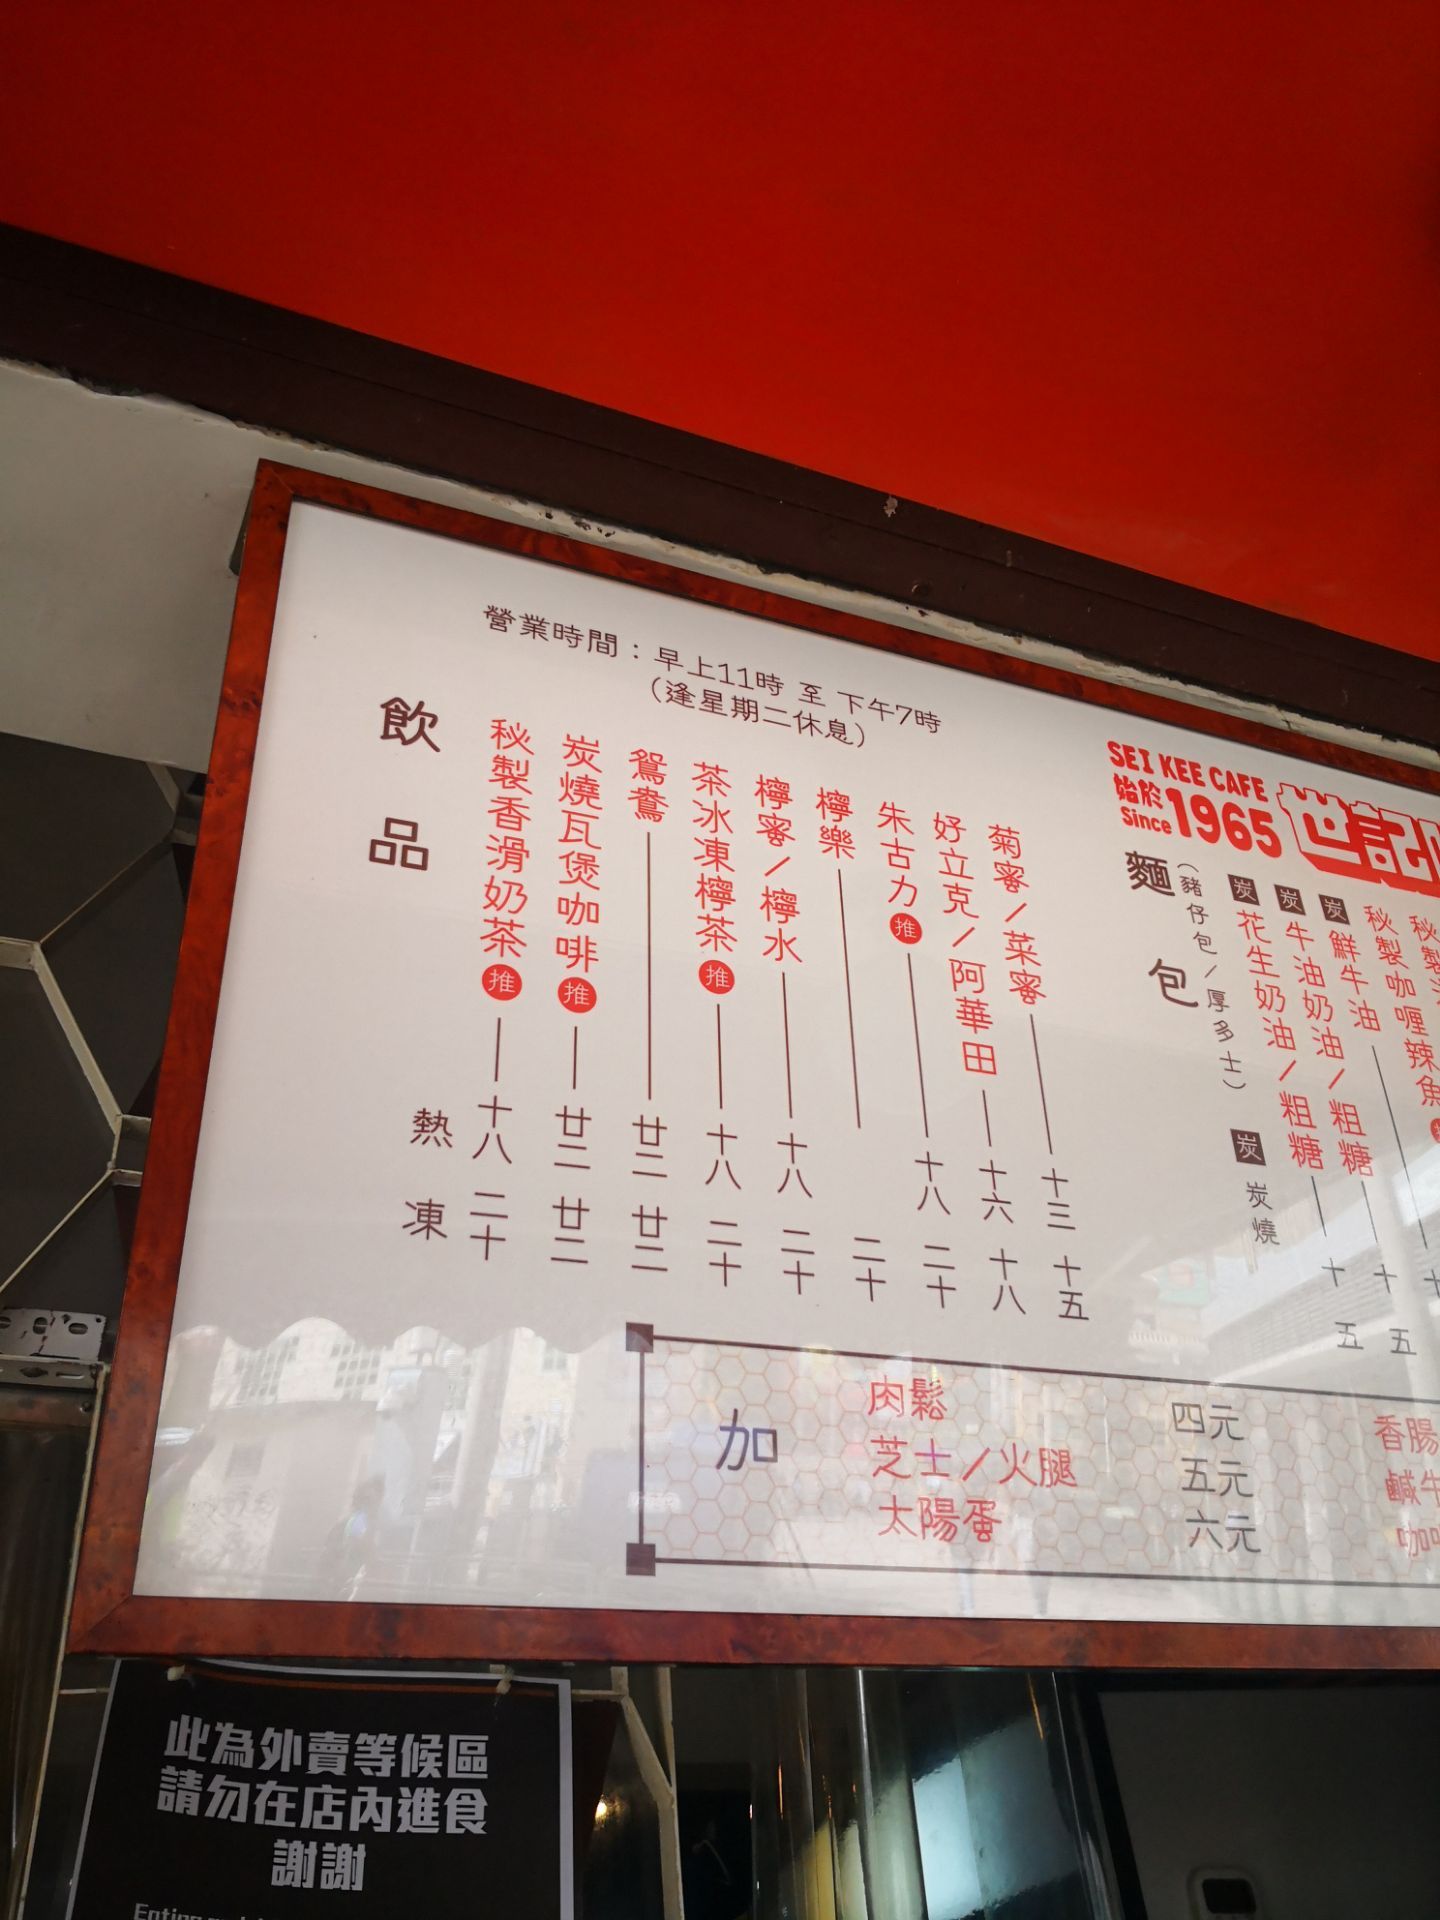 營業時間：早上11時 至 下午7時
(逢星期二休息)
飲品
熱 凍
秘製香滑奶茶 推 十八 二十
炭燒瓦煲咖啡 推 廿二 廿二
鴛鴦 廿二 廿二
茶冰凍檸茶 推 十八 二十
檸蜜/檸水 十八 二十
檸樂 二十
朱古力 推 十八 二十
好立克/阿華田 十六 十八
菊蜜/菜蜜 十三 十五
SEI KEE CAFE
始於
Since 1965
世記
麵包
(豬仔包/厚多士)
炭 炭燒
炭 花生奶油/粗糖 十五
炭 牛油奶油/粗糖 十五
炭 鮮牛油 十
秘製咖喱辣魚
秘製
加
肉鬆 四元
芝士/火腿 五元
太陽蛋 六元
香腸
鹹牛
咖
此為外賣等候區
請勿在店內進食
謝謝
Eating